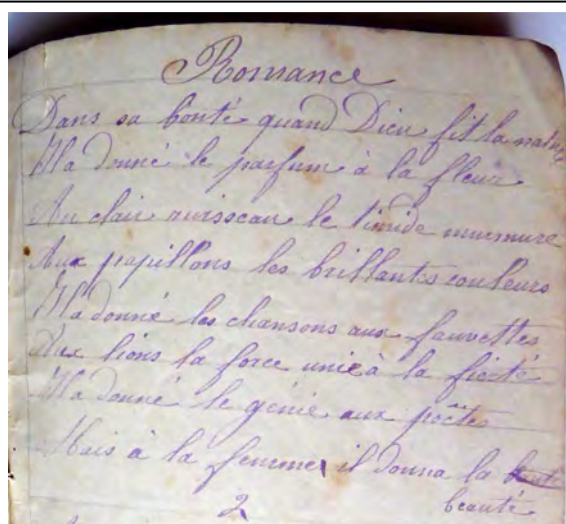 Romance
Dans sa bonté quand Dieu fit la nature
Il a donné le parfum à la fleur
Au clair ruisseau le timide murmure
Aux papillons les brillantes couleurs
Il a donné les chansons aux fauvettes
Aux lions la force unie à la fierté
Il a donné le génie aux poëtes
Mais à la femme il donna la
beauté
2